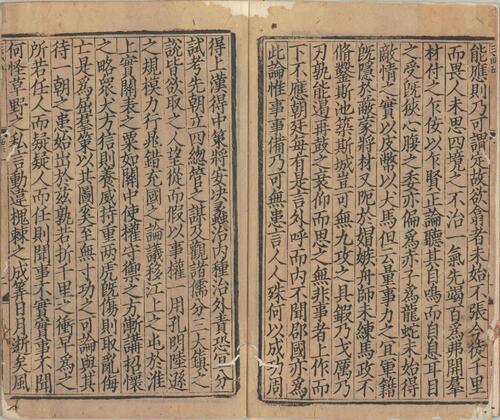 能應則乃可謂定故欲翕者未始不張一徒千里
而畏人未思四境之不治一氣先竭百為弗開羣
材付之乍佞以乍賢正論聽其自鳴而自息耳目
之受既狹心腹之委亦偏為赤子為龍蛇未始得
敵情之實以皮幣以犬馬但云量事力之宜軍籍
既隱於蔽蒙將材又阨於媢嫉舟師未練馬政不
脩鑿斯池築斯城豈可無九攻之具鍜乃戈厲乃
刃孰能遏再鼓之衰仰而思之無非事者上作而
下不應朝廷每有是言外呼而内不聞郡國亦爲
此論惟事事備乃可無患言人人殊何以成功周
得上漢得中策將安決蠡治内種治外責恐宜分
試考先朝立四總管之謀及觀諸儒分三大鎮之
說皆欲取之人望從而假以事權一用孔明陸遜
之規模力行晁錯充國之論議移江上之屯於淮
上實關表之粟如關中使權守御之方漸講招懷
之略衆大方信則養威持重兩虎既傷則取亂侮
亡是爲屈羣策以其圖奚至無寸功之可論與其
待一朝之患始出於兹孰若折千里之衝早爲之
所若任人而疑疑人而任則聞事不實實事不聞
何怪草野之私言動違槐棘之成筭日月逝矣風